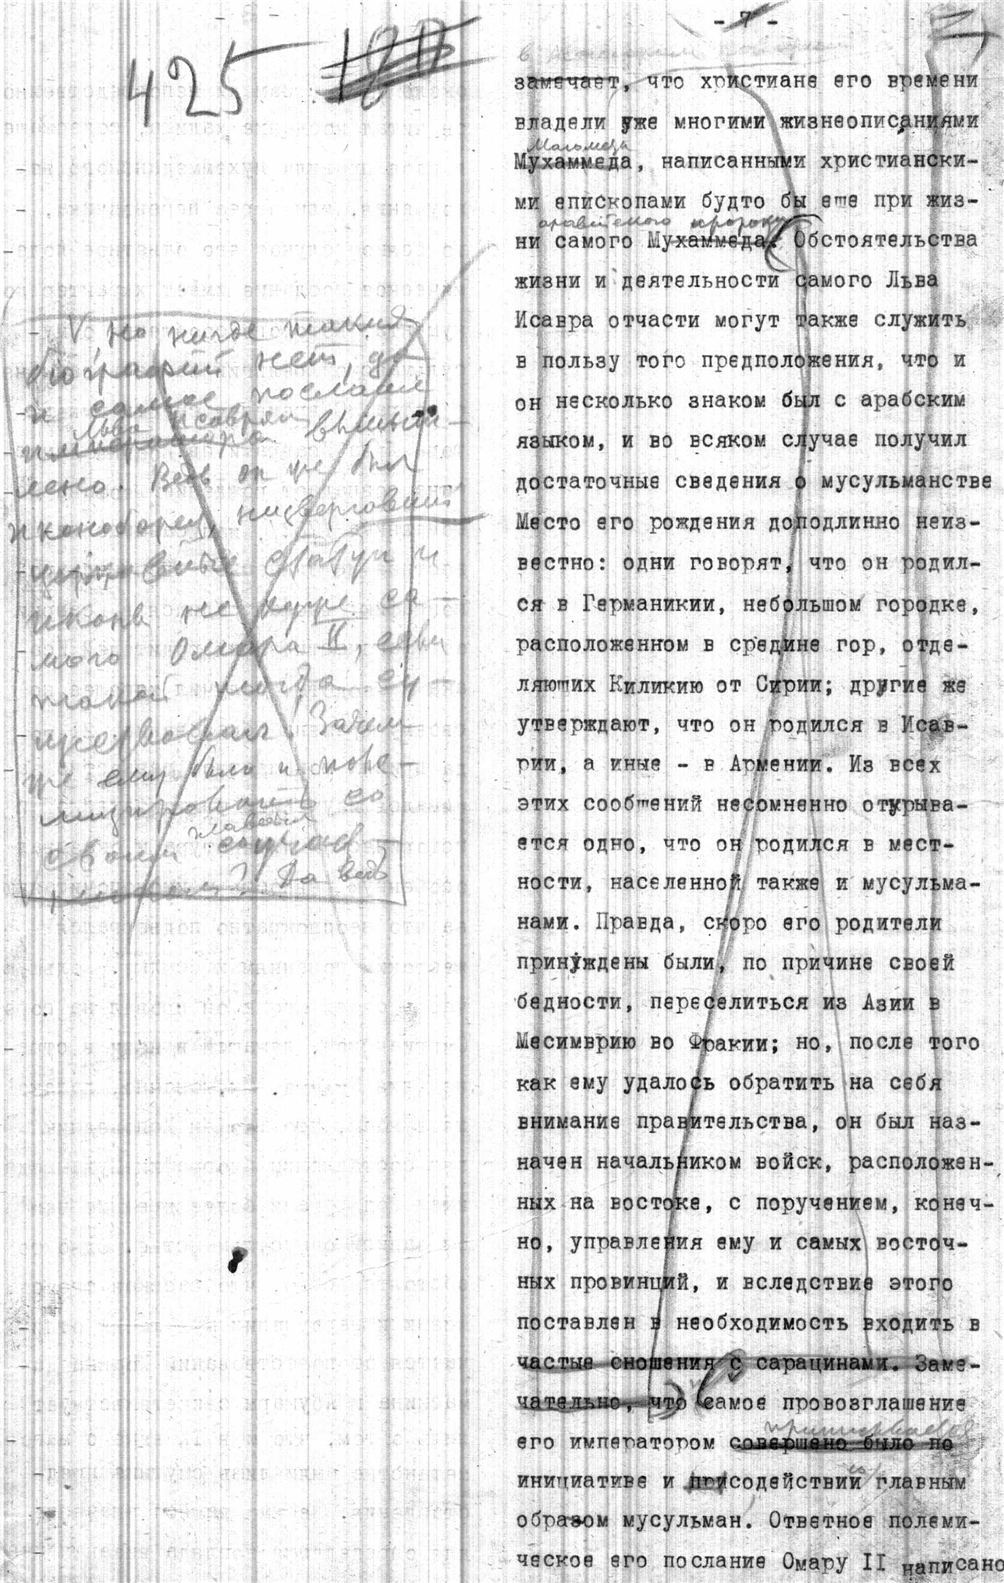 - 7 -
425
180
замечает, что христиане его времени
владели уже многими жизнеописаниями
Магомеда
Мухаммеда, написанными христиански-
ми епископами будто бы еше при жиз-
аравитского пророка
ни самого Мухаммеда. Обстоятельства
жизни и деятельности самого Льва
Исавра отчасти могут также служить
в пользу того предположения, что и
он несколько знаком был с арабским
языком, и во всяком случае получил
достаточные сведения о мусульманстве
Место его рождения доподлинно неиз-
вестно: одни говорят, что он родил-
ся в Германикии, небольшом городке,
расположенном в средине гор, отде-
ляюших Киликию от Сирии; другие же
утверждают, что он родился в Исав-
рии, а иные - в Армении. Из всех
этих сообшений несомненно открыва-
ется одно, что он родился в мест-
ности, населенной также и мусульма-
нами. Правда, скоро его родители
принуждены были, по причине своей
бедности, переселиться из Азии в
Месимврию во Фракии; но, после того
как ему удалось обратить на себя
внимание правительства, он был наз-
начен начальником войск, расположен-
ных на востоке, с поручением, конеч-
но, управления ему и самых восточ-
ных провинций, и вследствие этого
поставлен в необходимость входить в
частые сношения с сарацинами. Заме-
чательно, что самое провозглашение
его императором совершено было по
инициативе и присодействии главным
образом мусульман. Ответное полеми-
ческое его послание Омару II написано
V Но нигде таких
биографий нет, да
и самое послание
Льва Исавра
императора вымыш-
лено. Ведь он же был
иконоборец, низвергавший
церковные статуи и
иконы не хуже са-
мого Омара II, если
такой тогда су-
ществовал. Зачем
же ему было и поле-
мизировать со
своим
главным
? Да ведь